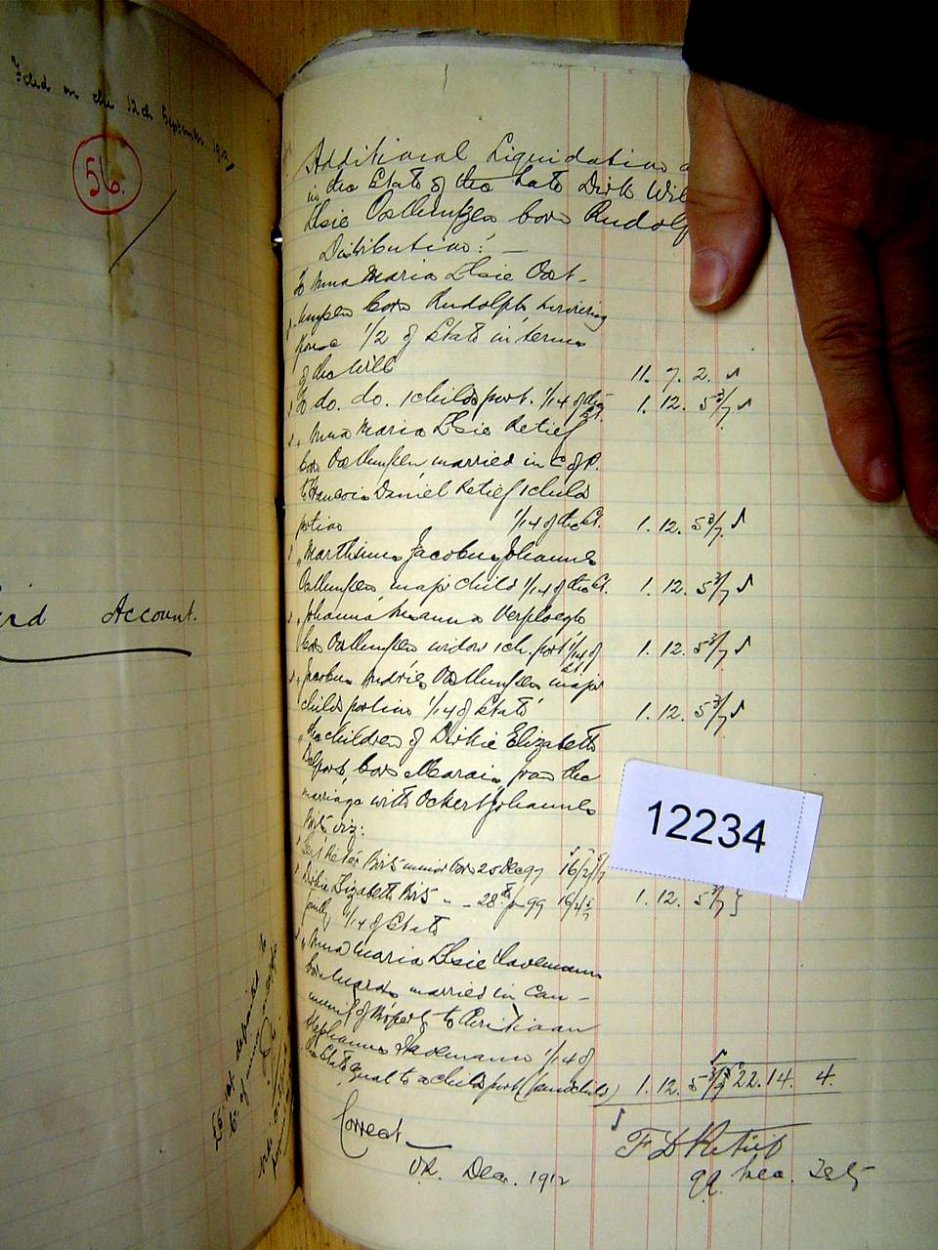 Filed on the 12th September 1912
56.
Third Account.
Additional Liquidation a
in the Estate of the late Dirk Wil
Elsie Oosthuyzen born Rudolp
Distribution: —
To Anna Maria Elsie Oost-
huysen born Rudolph surviving
spouse 1/2 of Estate in terms
of the Will 11. 7. 2.
To do. do. 1 childs port. 1/14 of the Est. 1. 12. 5 3/7
" Anna Maria Elsie Retief
born Oosthuysen, married in C of P.
to Francois Daniel Retief 1 childs
portion 1/14 of the Est. 1. 12. 5 3/7
" Marthinus Jacobus Johannes
Oosthuysen, major child 1/14 of the Est. 1. 12. 5 3/7
" Johanna Susanna Verploegh
born Oosthuysen widow 1 ch. port 1/14 of Est. 1. 12. 5 3/7
" Jacobus Andries Oosthuysen major
childs portion 1/14 of Estate 1. 12. 5 3/7
" the children of Dirkie Elizabeth
Delport, born Marais, from the
marriage with Ockert Johannes
Brits viz:
Pieter Brits minor born 25 Dec 97 16/2 5/7
Dirkie Elizabeth Brits - - 28th 99 1. 12. 5 3/7 }
jointly 1/14 of Estate
" Anna Maria Elsie Haveman
born Marais married in Com-
munity of Property to Christiaan
Stephanus Haveman 1/14 of
the Estate equal to a childs port (grandchild) 1. 12. 5 3/7 22. 14. 4.
Correct
Dec. 1912
F D Retief
qq Exec. Test
12234